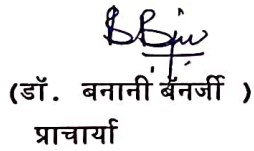 (डॉ. बनानी बॅनर्जी )
प्राचार्या